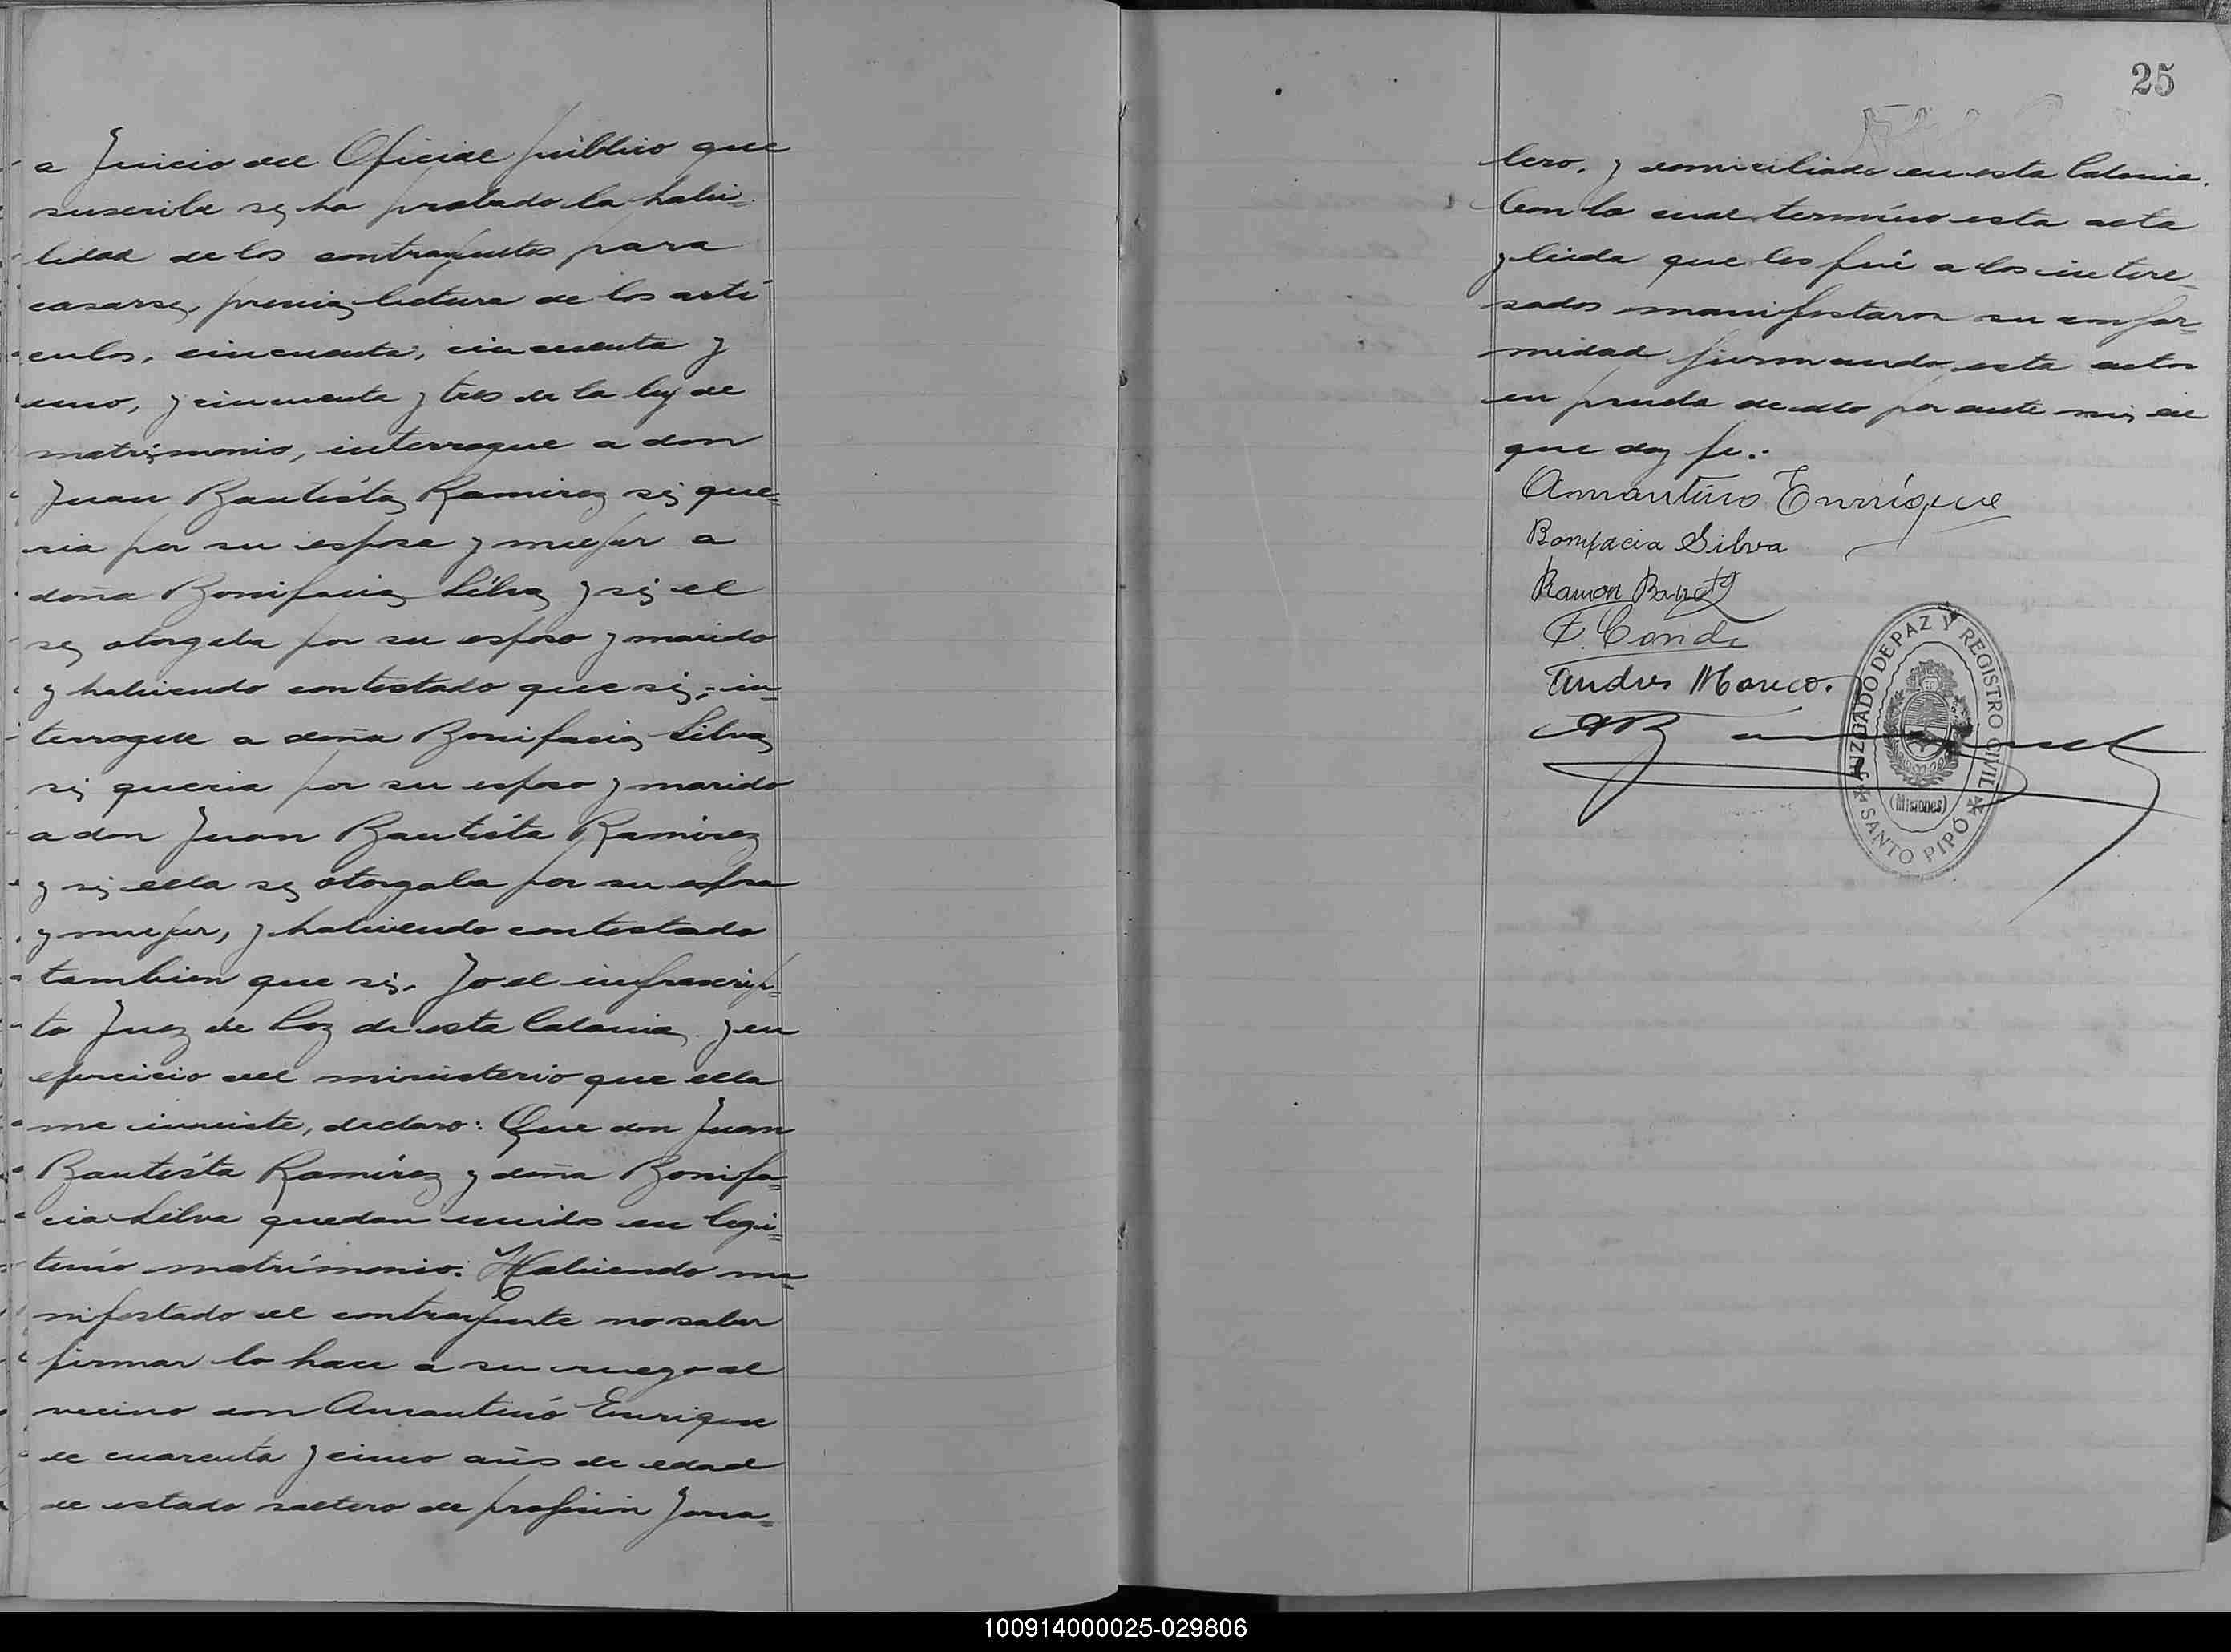 a Juicio del Oficial público que
suscribe se ha probado la habi-
lidad de los contrayentes para
casarse, previa lectura de los arti-
culos, cincuenta, cincuenta y
uno, y cincuenta y tres de la ley de
matrimonio, interrogue a don
Juan Bautista Ramirez si que=
ria por su esposa y mujer a
doña Bonifacia Silva y si el
se otorgaba por su esposo y marido
y habiendo contestado que si, in=
terrogue a doña Bonifacia Silva
si queria por su esposo y marido
a don Juan Bautista Ramirez
y si ella se otorgaba por su esposa
y mujer, y habiendo contestado
tambien que si. Yo el infrascrip=
to Juez de Paz de esta Colonia y en
ejercicio del ministerio que ella
me inviste, declaro: Que don Juan
Bautista Ramirez y doña Bonifa=
cia Silva quedan unidos en legi=
timo matrimonio. Habiendo ma=
nifestado el contrayente no saber
firmar lo hace a su ruego el
vecino don Amantino Enrique
de cuarenta y cinco años de edad
de estado soltero de profesion Jorna=
25
lero, y domiciliado en esta Colonia.
Con lo cual termino esta acta
y leida que les fué a los intere-
sados manifestaron su confor-
midad firmando esta acta
en prueba de ello por ante mi, de
que doy fe.:
Amantino Enrique
Bonifacia Silva
Ramon
F. Conde
Andres Mareco.
JUZGADO DE PAZ Y REGISTRO CIVIL
(Misiones)
SANTO PIPÓ
100914000025-029806